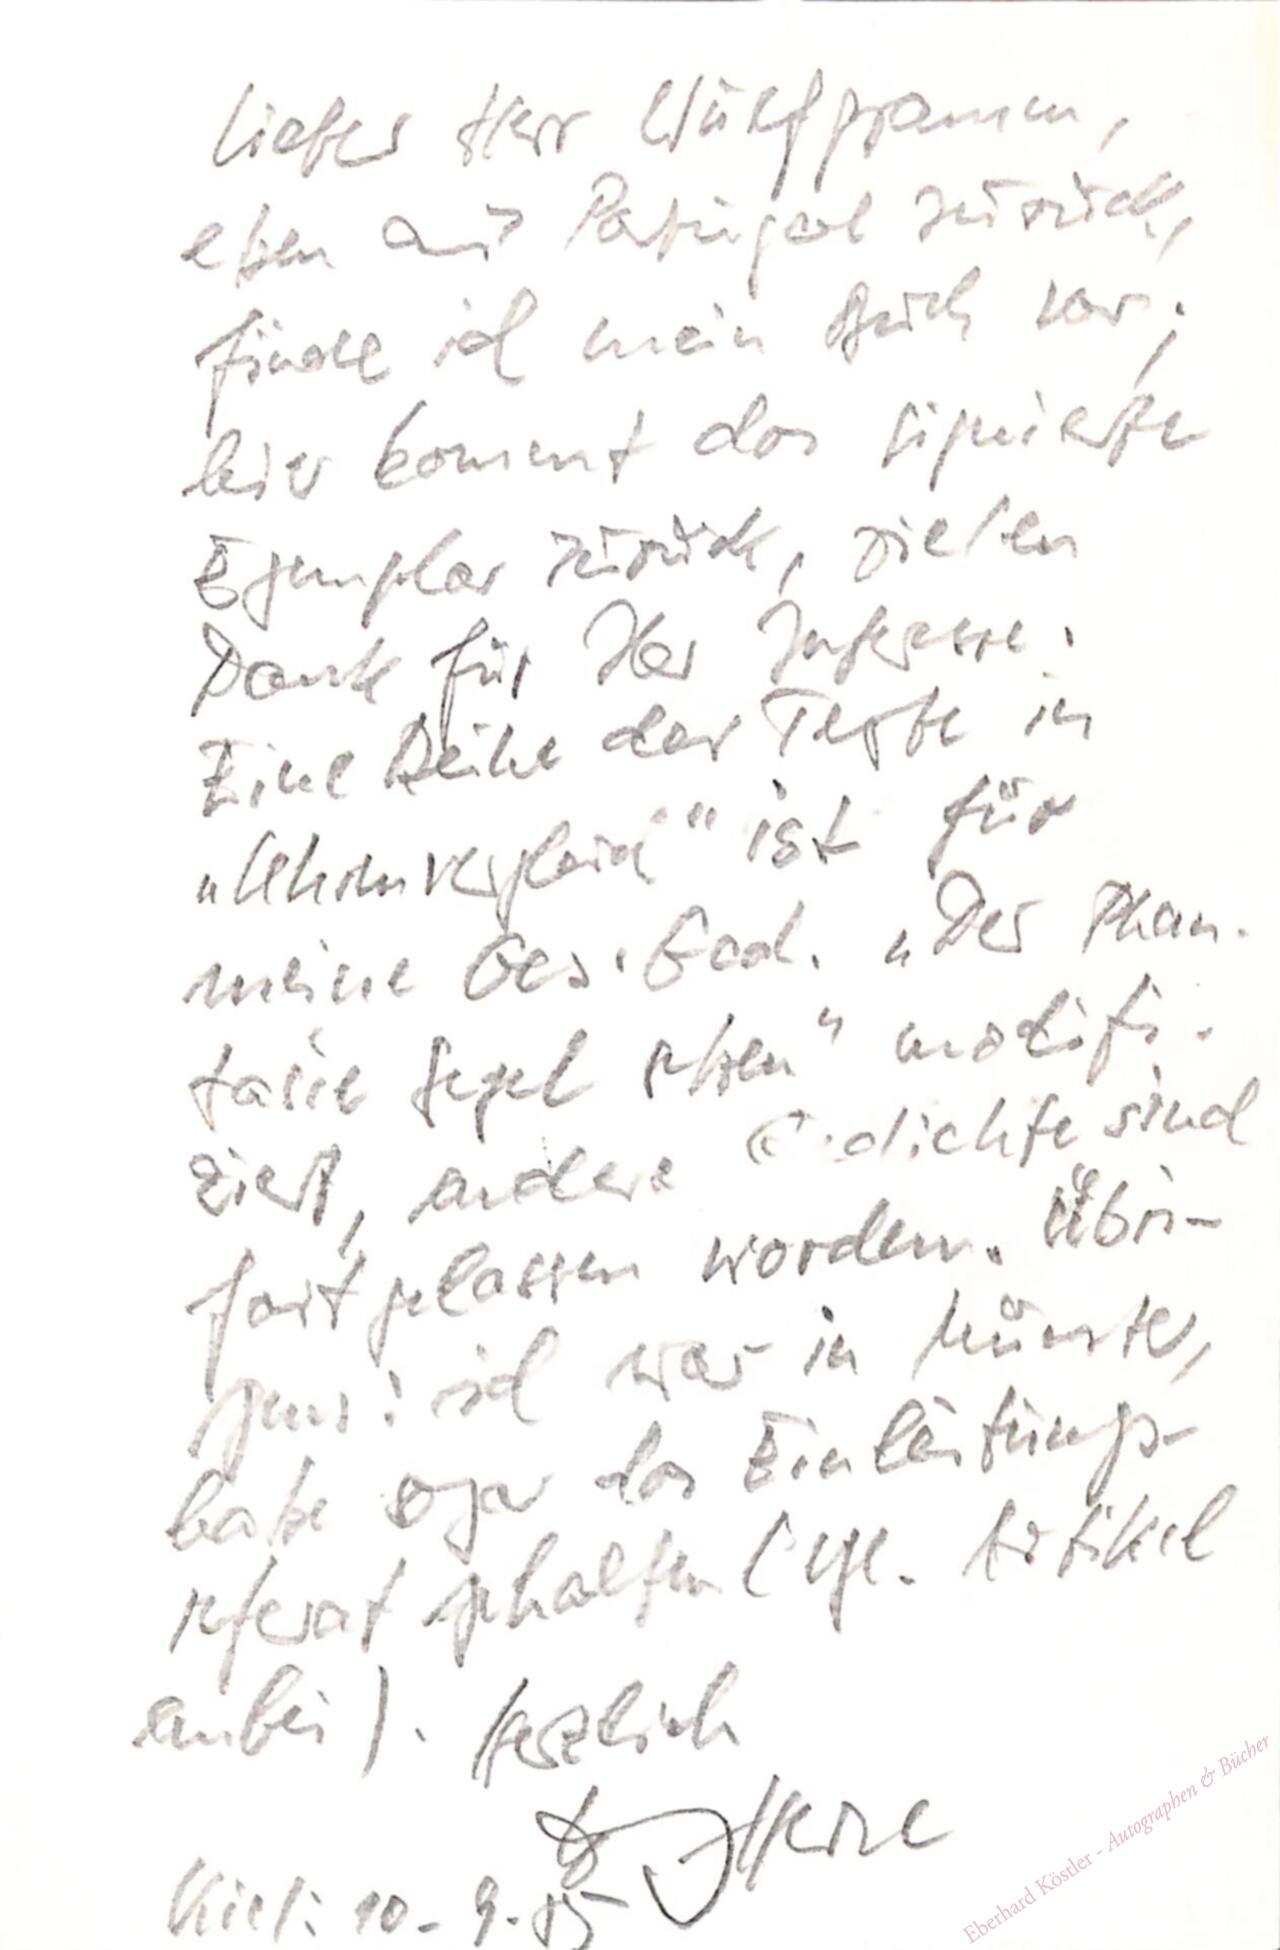 Lieber Herr Wulfgramm,
eben aus Portugal zurück,
finde ich mein Buch vor;
hier kommt das signierte
Exemplar zurück, vielen
Dank für Ihr Interesse.
Eine Reihe der Texte in
„Uhrenvergleich" ist für
meine Ges. Ged. „Der Phan-
tasie Segel setzen" modifi-
ziert, andere Gedichte sind
fortgelassen worden. Übri-
gens: ich war in Münster,
habe sogar das Einleitungs-
referat gehalten (vgl. Artikel
anbei). Herzlich
Heise
Kiel: 10-9-85
Eberhard Köstler - Autographen & Bücher